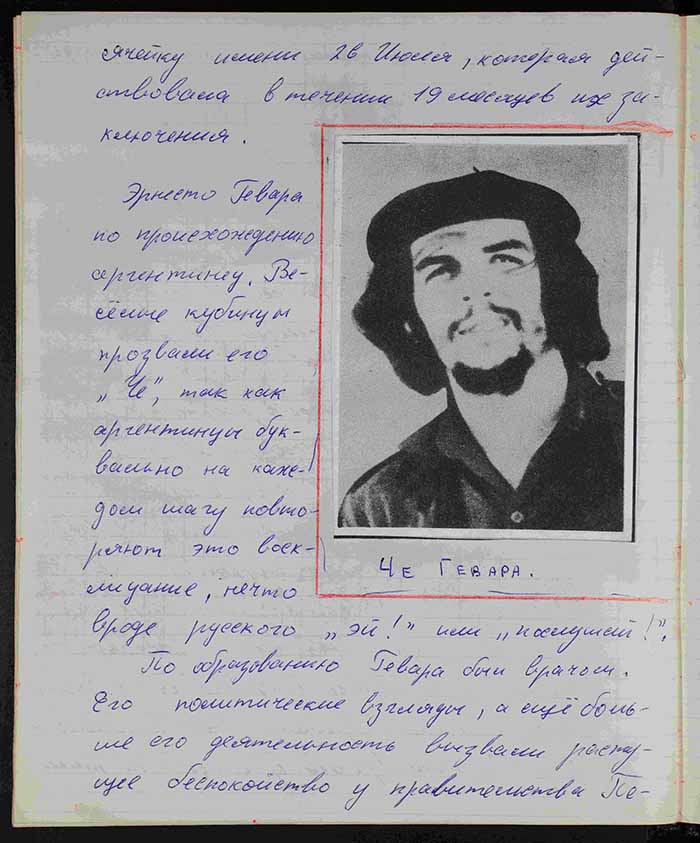 ячейку имени 26 Июля, которая дей-
ствовала в течении 19 месяцев их за-
ключения.
Эрнесто Гевара
по происхождению
аргентинец. Ве-
сёлые кубинцы
прозвали его
„Че", так как
аргентинцы бук-
вально на каж-
дом шагу повто-
ряют это воск-
лицание, нечто
вроде русского „эй!" или „послушай!".
Че Гевара.
По образованию Гевара был врачом.
Его политические взгляды, а ещё боль-
ше его деятельность вызвали расту-
щее беспокойство у правительства Пе-